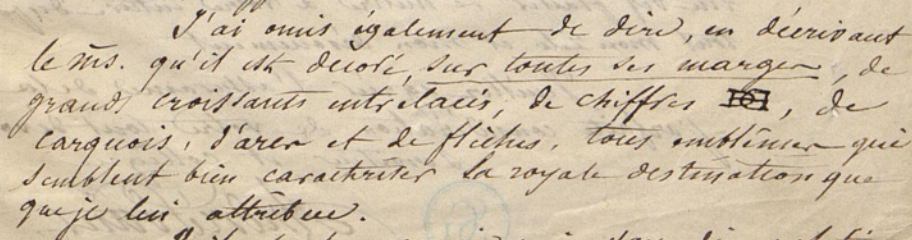 J'ai omis également de dire, en décrivant
le ms. qu'il est décoré, sur toutes ses marges, de
grands croissants entrelacés, de chiffres , de
carquois, d'arcs et de flèches, tous emblêmes qui
semblent bien caractériser la royale destination que
que je lui attribue.